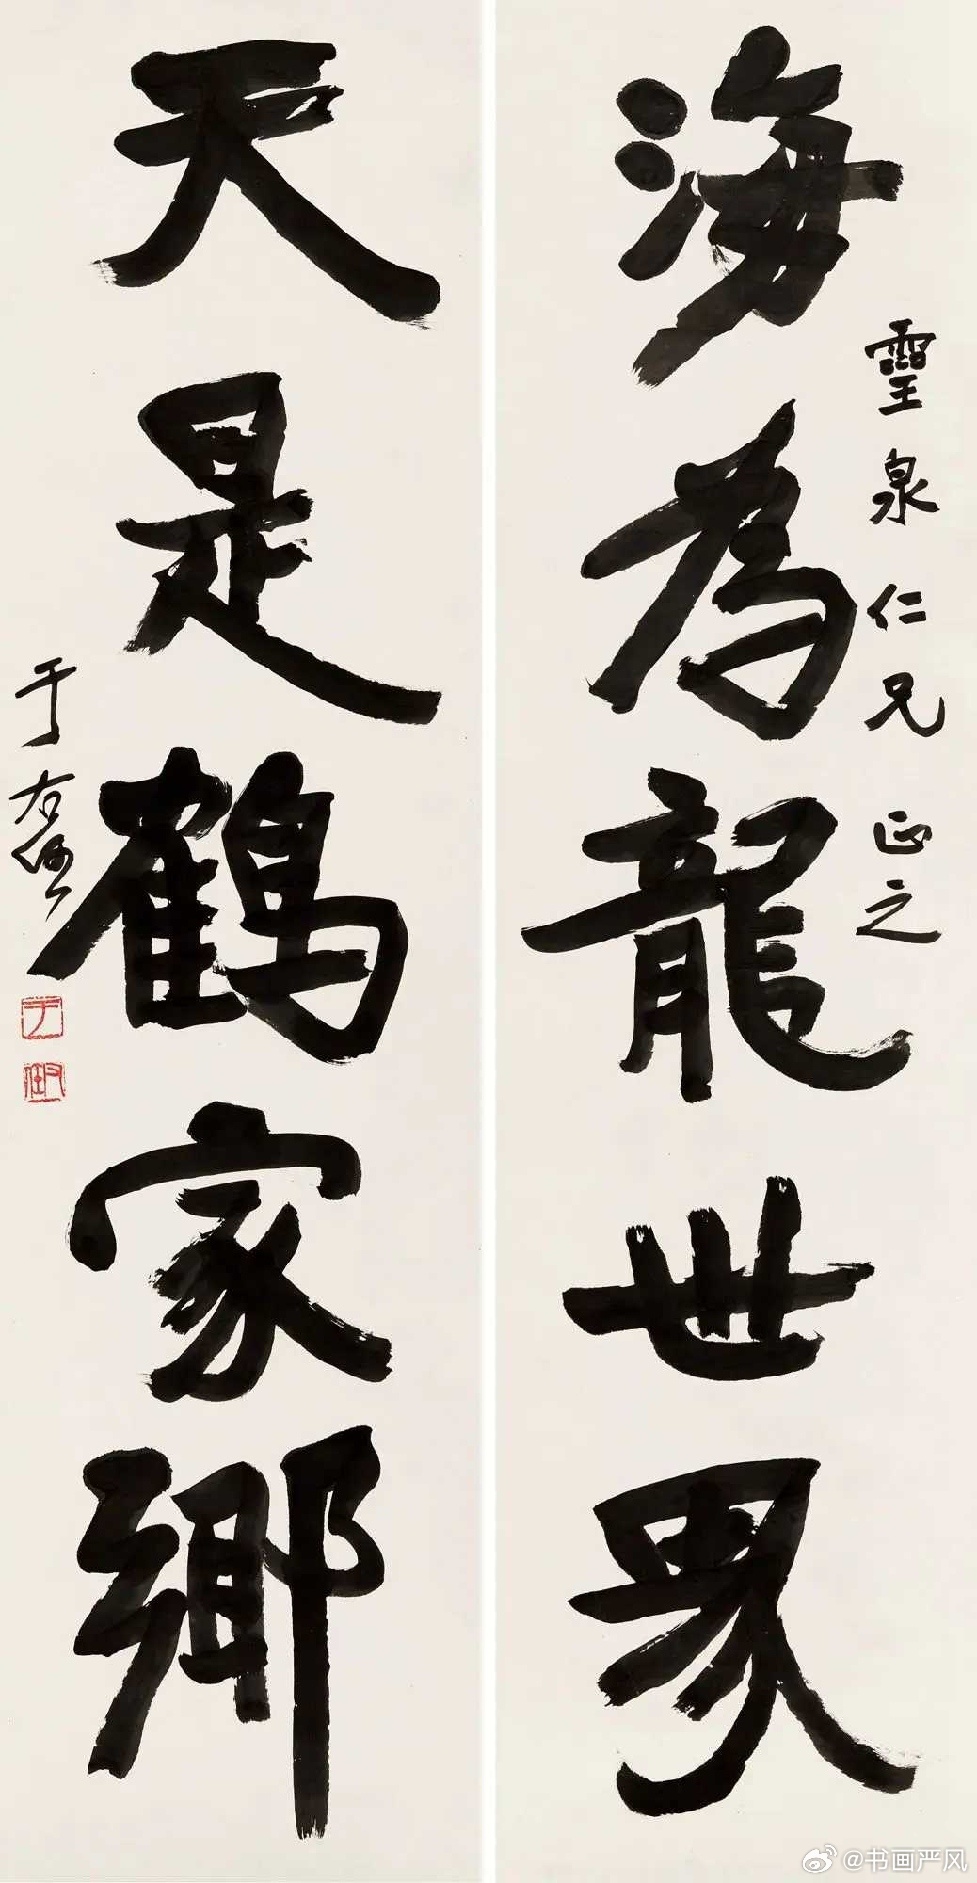 靈泉仁兄正之
海為龍世界
天是鶴家鄉
于右任
@书画严风